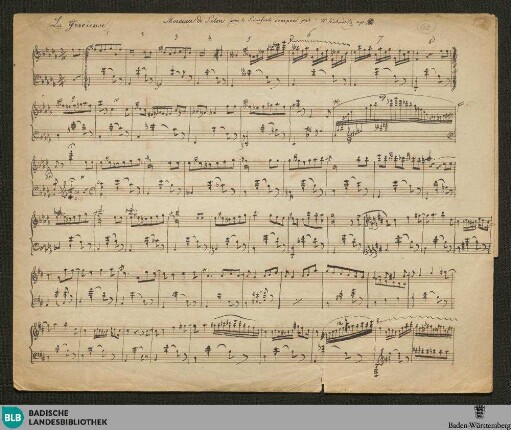 La Gracieuse Morceau de Salon pour le Pianoforte composé par
1 2 3 4 5 6 7 8
BLB BADISCHE
LANDESBIBLIOTHEK
Baden-Württemberg